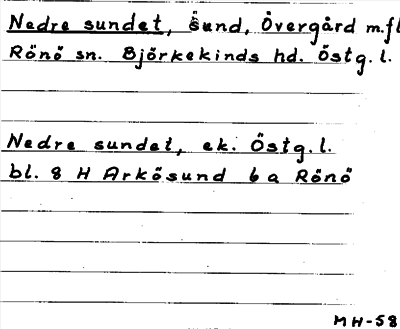 Nedre sundet, Sund, Övergård m.fl
Rönö sn. Björkekinds hd. Östg. l.
Nedre sundet, ek. Östg. l.
bl. 8 H Arkösund 6 a Rönö
MH-58